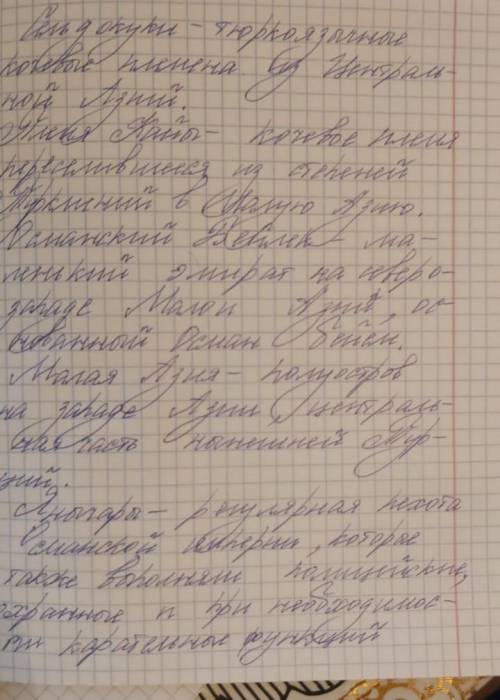 Сельджуки - тюркоязычные
кочевые племена из Централь-
ной Азий.
Племя Кайы - кочевое племя
переселившееся из степеней
Туркмений в Малую Азию.
Османский бейлек - ма-
ленький эмират на северо-
западе Малой Азий, ос-
нованный Осман бейем.
Малая Азия - полуостров
на западе Азии, централь-
ная часть нынешней Тур-
ций.
Янычары - регулярная пехота
Османской империи, которые
также выполняли полицейские,
охранные и при необходимос-
ти карательные функций